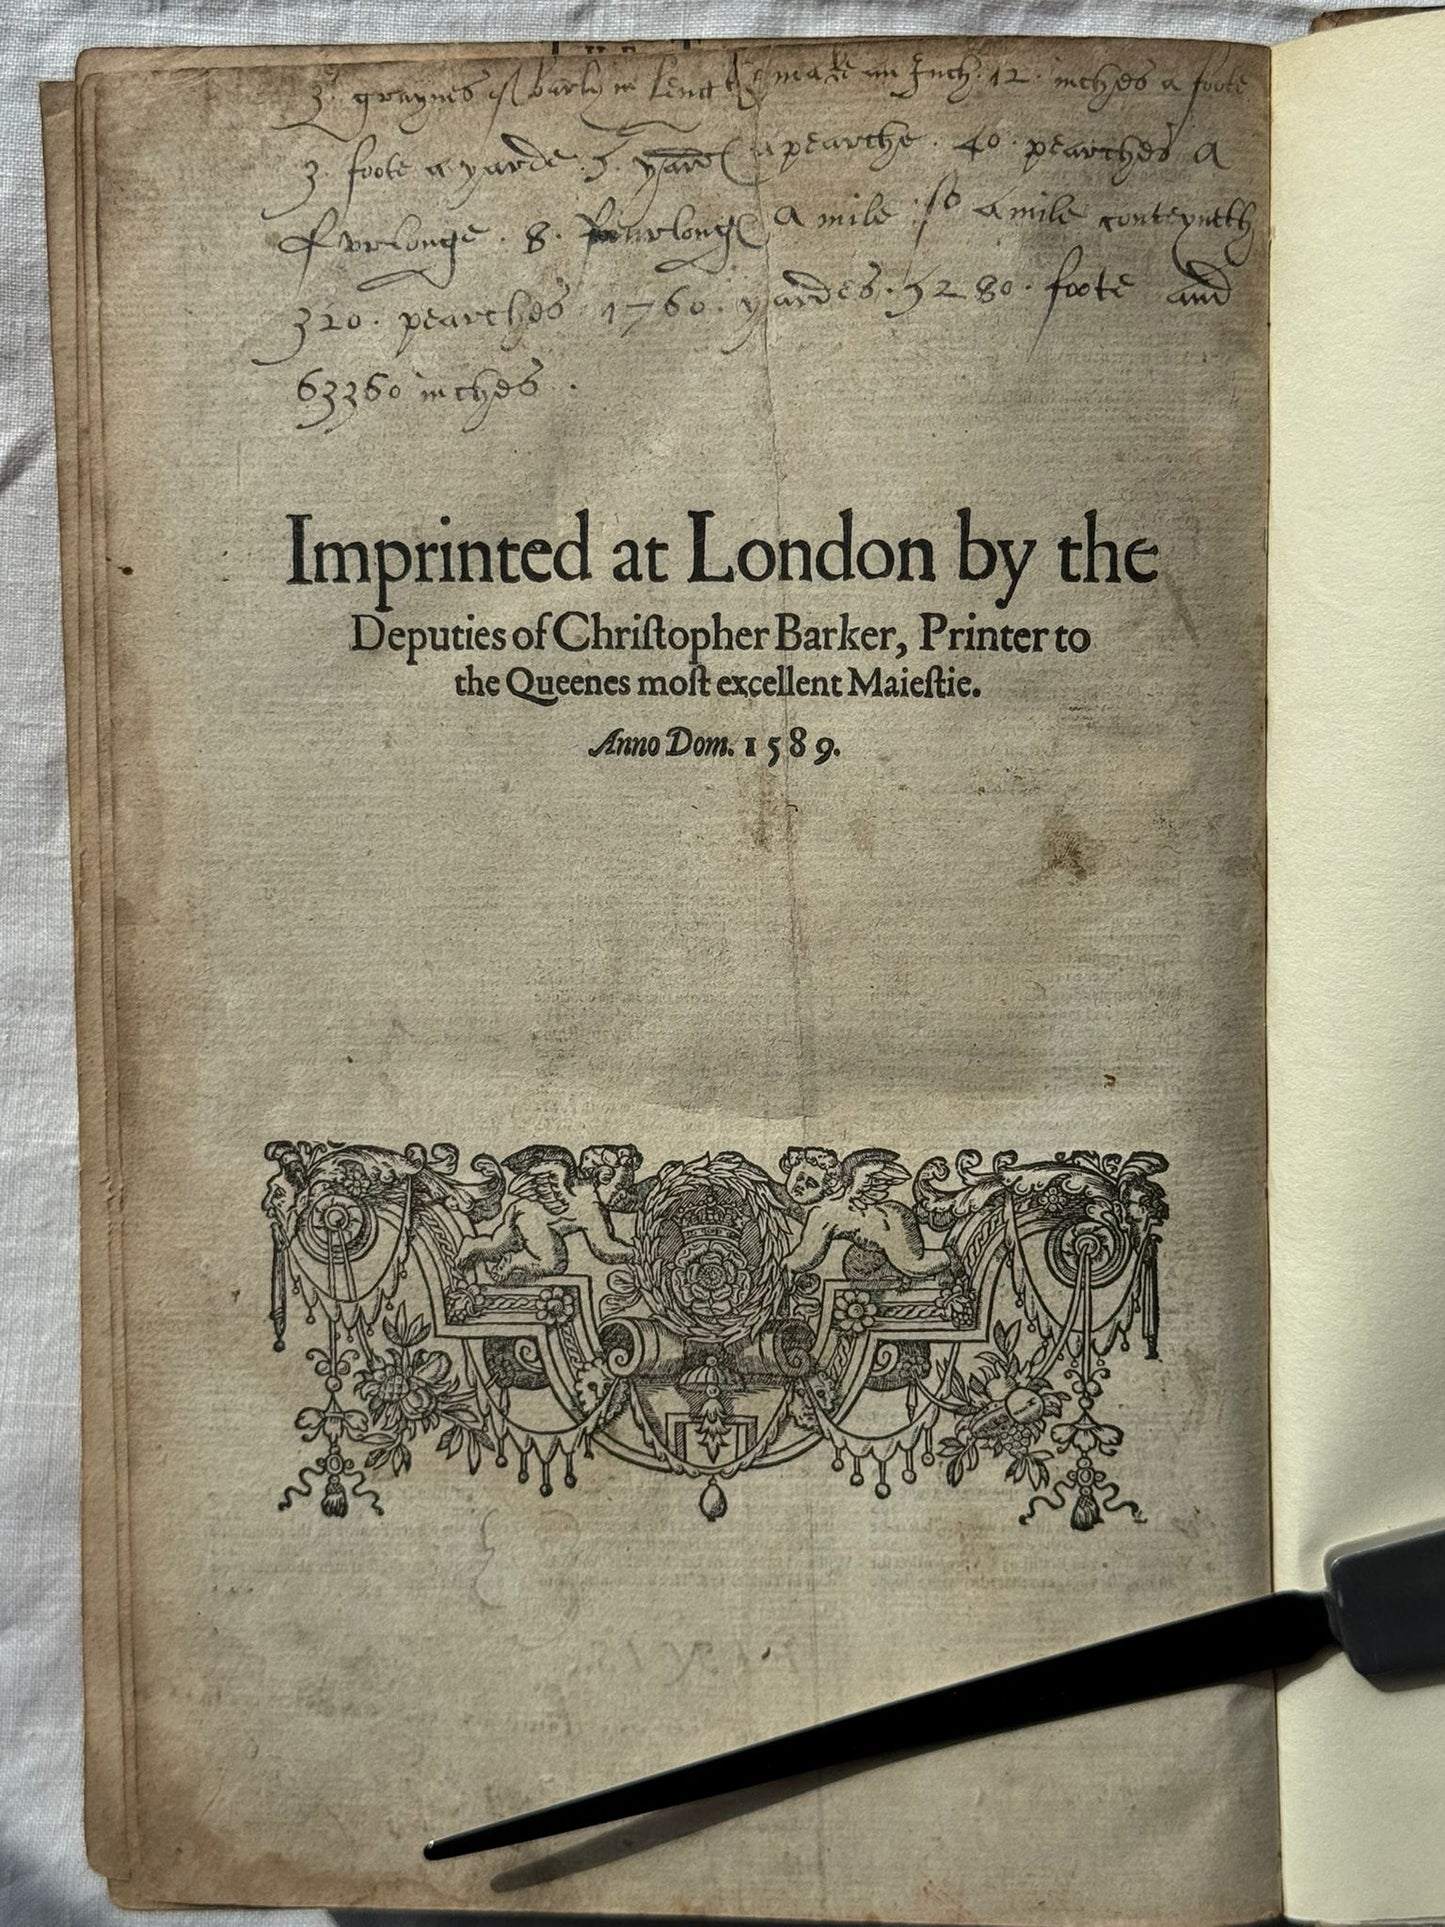 3 graynes of barly in lengthe make an Inch. 12. inches a foote
3. foote a yarde. 5. yard a pearche. 40. pearches a
Furlonge. 8. fourlong a mile. so a mile conteyneth
320. pearches. 1760. yardes. 5280. foote and
63360 inches.
Imprinted at London by the
Deputies of Chriſtopher Barker, Printer to
the Queenes moſt excellent Maieſtie.
Anno Dom. 1589.